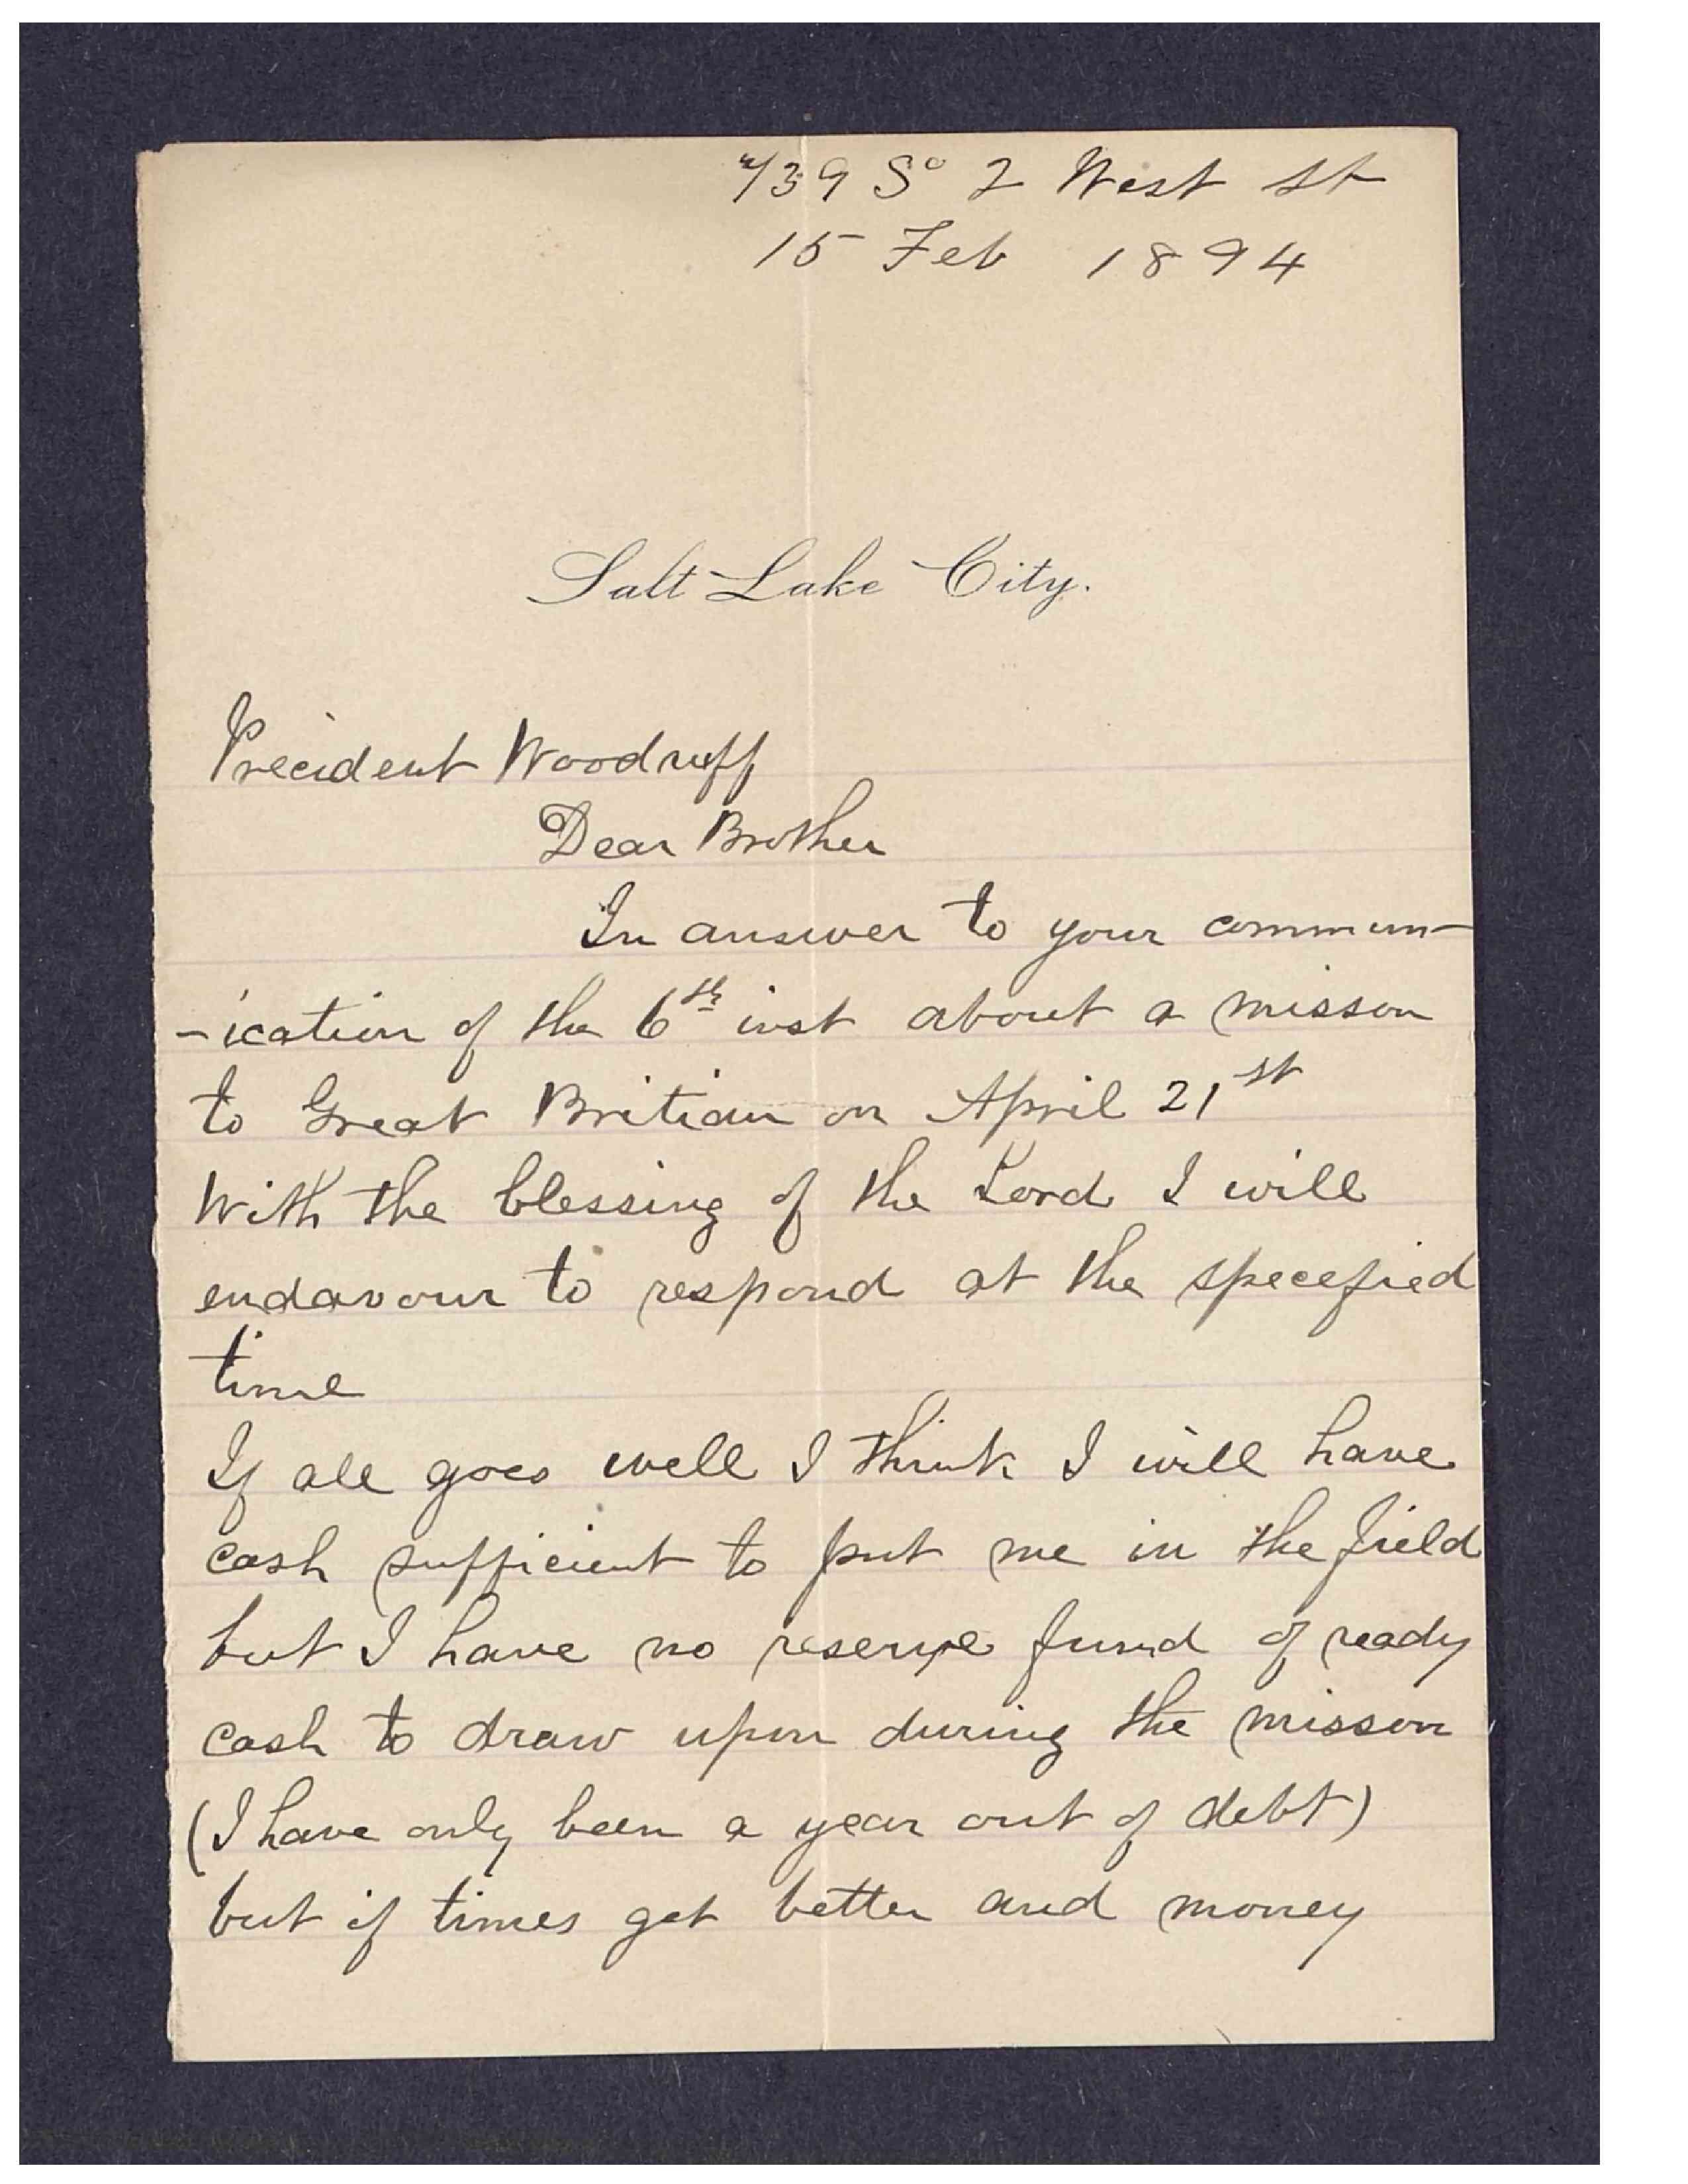 739 So 2 West st
15 Feb 1894
Salt Lake City.
Precident Woodruff
Dear Brother
In answer to your commun-
-ication of the 6th inst about a misson
to Great Britian on April 21st
With the blessing of the Lord I will
endavour to respond at the specefied
time
If all goes well I think I will have
cash sufficient to put me in the field
but I have no reserve fund of ready
cash to draw upon during the misson
(I have only been a year out of debt)
but if times get better and money